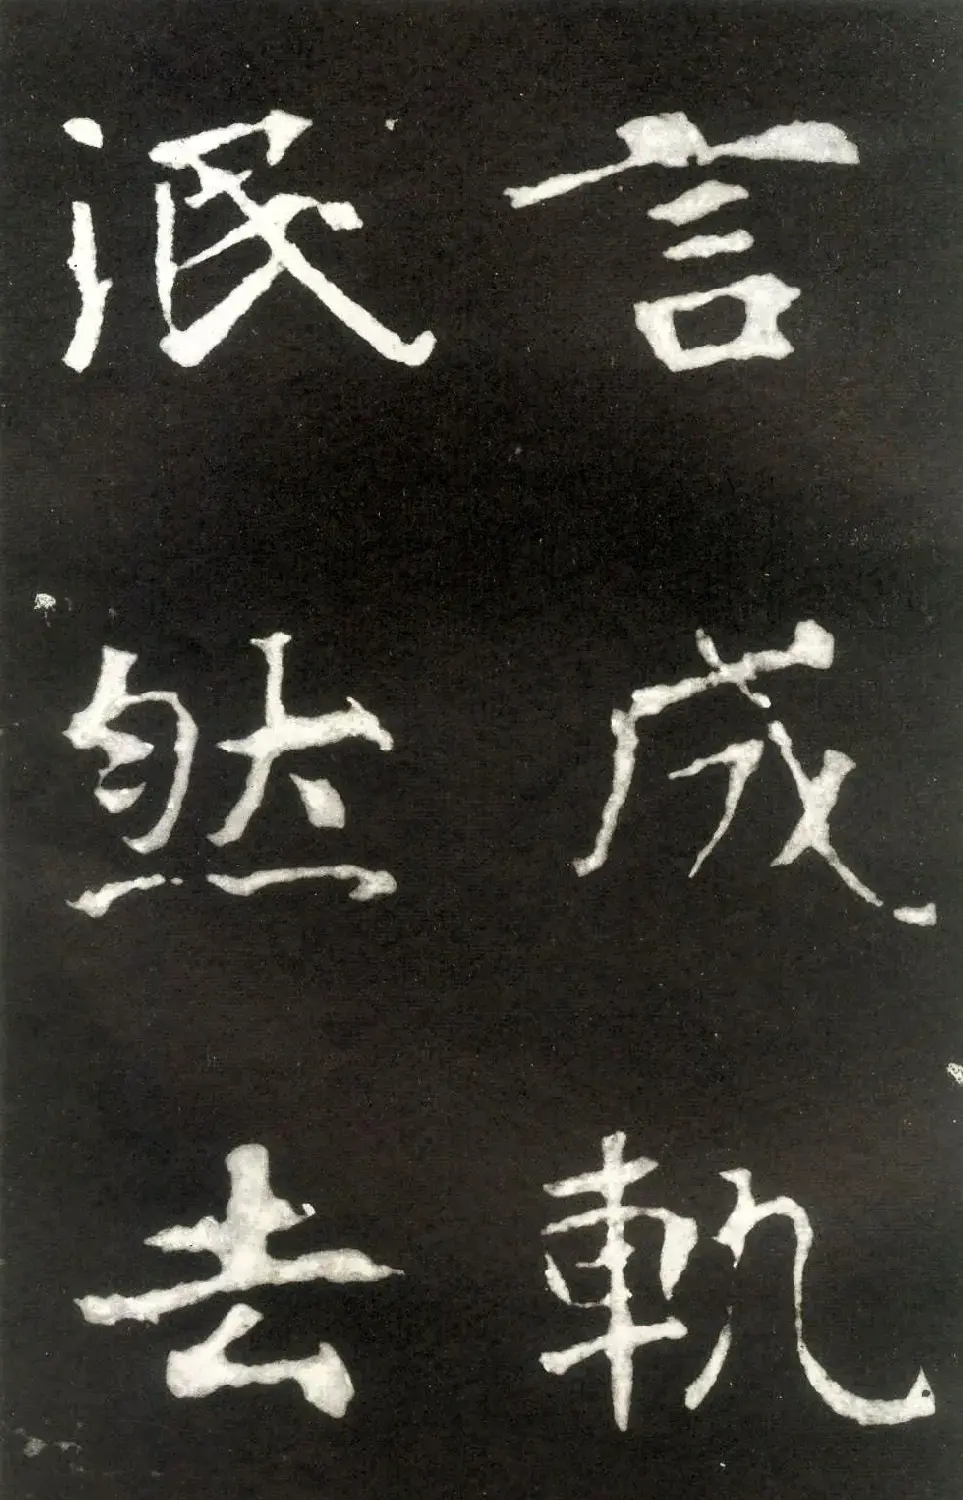 言成軌
泯然去